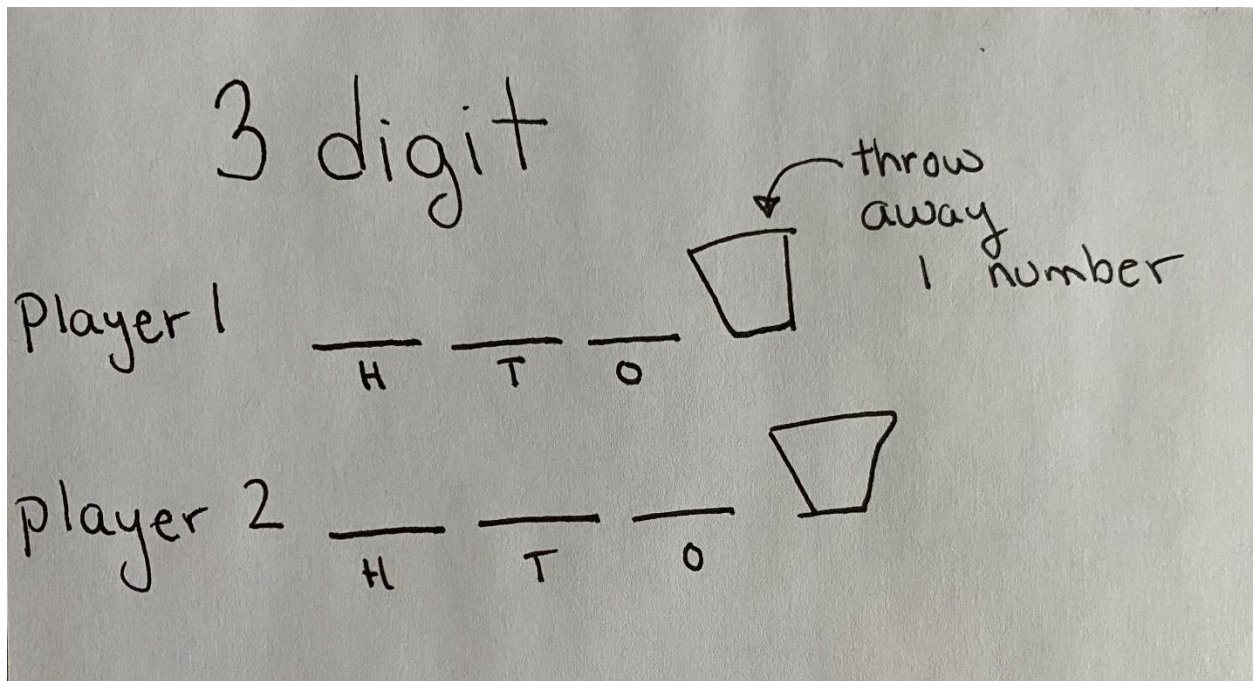 3 digit
throw
away
1 number
Player 1
H T O
player 2
H T O